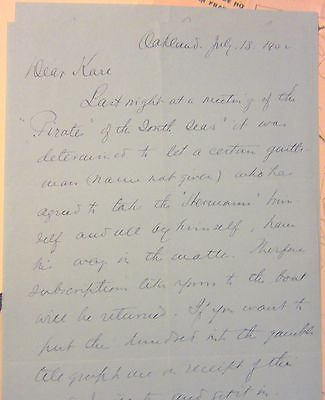 Oakland, July. 13. 190
Dear Kare
Last night at a meeting of the
"Pirates" of the South Seas" it was
determined to let a certain gentle-
man (name not given) who has
agreed to take the "Hermann" him
self and all by himself, have
his way in the matter. Therefore
subscriptions to the boat
will be returned. If you want to
put the hundred into the gamble
telegraph me on receipt of this
and